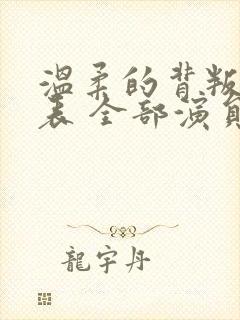 温柔的背叛
表 全部演員
龍宇丹